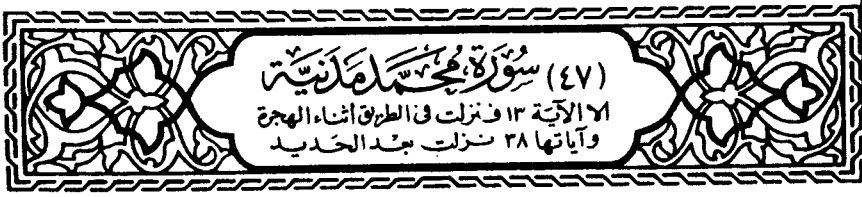 (٤٧) سُورَة مُحَمَّد مَدَنيَّة
الا الآية ١٣ فنزلت في الطريق أثناء الهجرة
وآياتها ٣٨ نزلت بعد الحديد